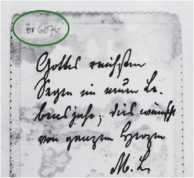 Gottes reichsten
Segen in neuen Le-
bensjahr, dies wünscht
von ganzem Herzen
M. L.